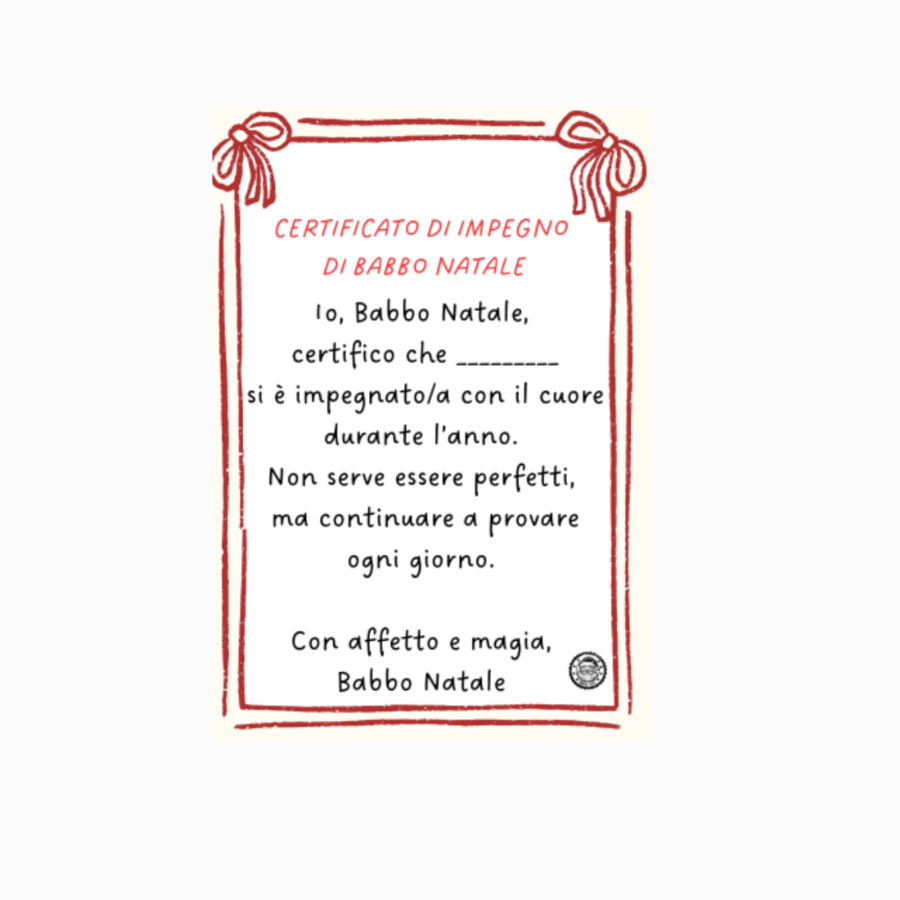 CERTIFICATO DI IMPEGNO
DI BABBO NATALE
Io, Babbo Natale,
certifico che _________
si è impegnato/a con il cuore
durante l'anno.
Non serve essere perfetti,
ma continuare a provare
ogni giorno.
Con affetto e magia,
Babbo Natale